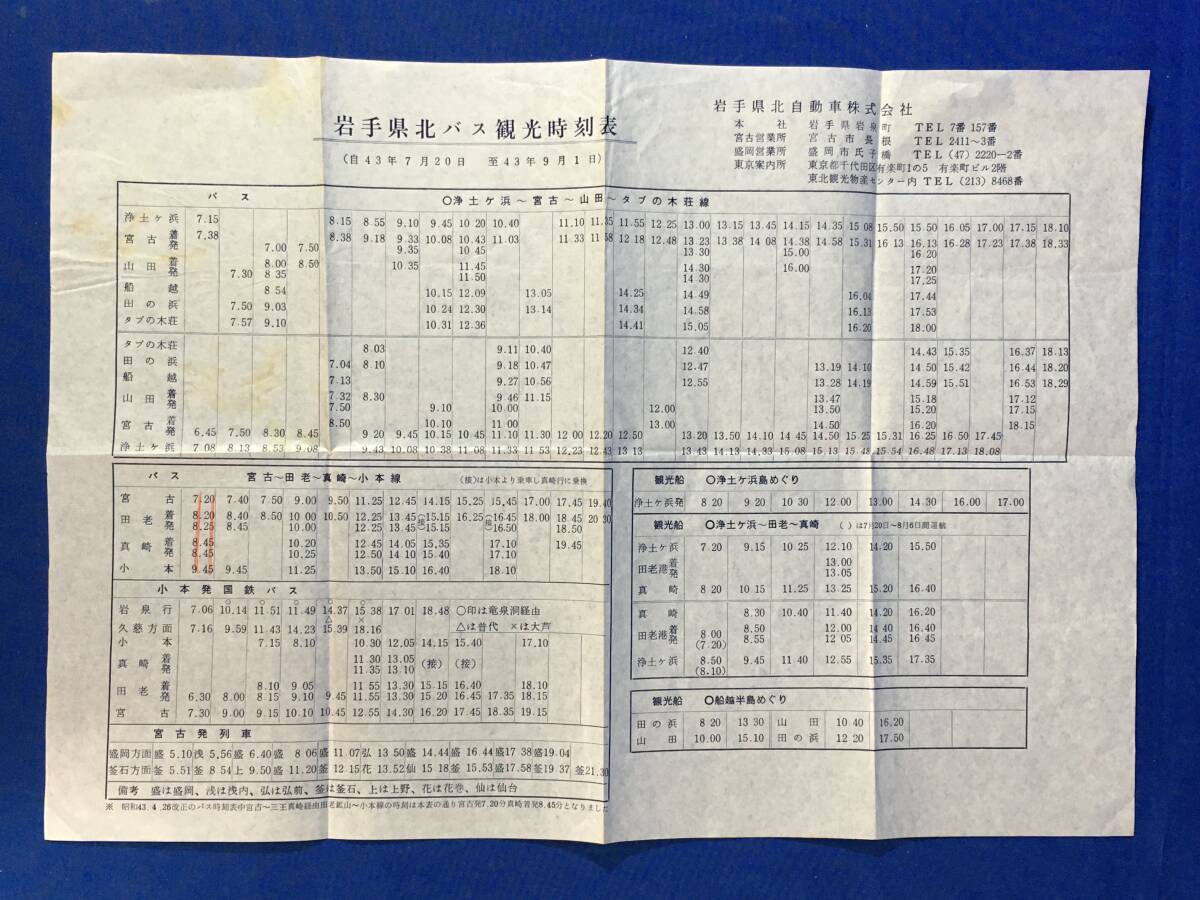 岩手県北バス観光時刻表
(自43年7月20日 至43年9月1日)
岩手県北自動車株式会社
本社 岩手県岩泉町 TEL 7番 157番
宮古営業所 宮古市長根 TEL 2411～3番
盛岡営業所 盛岡市氏子橋 TEL (47) 2220―2番
東京案内所 東京都千代田区有楽町1の5 有楽町ビル2階
東北観光物産センター内 TEL (213) 8468番
バス ○浄土ケ浜～宮古～山田～タブの木荘線
浄土ケ浜 7.15 8.15 8.55 9.10 9.45 10.20 10.40 11.10 11.35 11.55 12.25 13.00 13.15 13.45 14.15 14.35 15.08 15.50 15.50 16.05 17.00 17.15 18.10
宮古 着 7.38 8.38 9.18 9.33 10.08 10.43 11.03 11.33 11.58 12.18 12.48 13.23 13.38 14.08 14.38 14.58 15.31 16 13 16.13 16.28 17.23 17.38 18.33
発 7.00 7.50 9.35 10.45 13.30 15.00 16.20
山田 着 8.00 8.50 10.35 11.45 14.30 16.00 17.20
発 7.30 8.35 11.50 14.30 17.25
船越 8.54 10.15 12.09 13.05 14.25 14.49 16.04 17.44
田の浜 7.50 9.03 10.24 12.30 13.14 14.34 14.58 16.13 17.53
タブの木荘 7.57 9.10 10.31 12.36 14.41 15.05 16.20 18.00
タブの木荘 8.03 9.11 10.40 12.40 14.43 15.35 16.37 18.13
田の浜 7.04 8.10 9.18 10.47 12.47 13.19 14.10 14.50 15.42 16.44 18.20
船越 7.13 9.27 10.56 12.55 13.28 14.19 14.59 15.51 16.53 18.29
山田 着 7.32 8.30 9.46 11.15 13.47 15.18 17.12
発 7.50 9.10 10.00 12.00 13.50 15.20 17.15
宮古 着 8.50 10.10 11.00 13.00 14.50 16.20 18.15
発 6.45 7.50 8.30 8.45 9.20 9.45 10.15 10.45 11.10 11.30 12 00 12.20 12.50 13.20 13.50 14.10 14.45 14.50 15.25 15.31 16.25 16.50 17.45
浄土ケ浜 7.08 8.13 8.53 9.08 9.43 10.08 10.38 11.08 11.33 11.53 12.23 12.43 13 13 13.43 14.13 14.33 15.08 15.13 15.48 15.54 16.48 17.13 18.08
バス 宮古～田老～真崎～小本線 (接)は小本より乗車し真崎行に乗換
宮古 7.20 7.40 7.50 9.00 9.50 11.25 12.45 14.15 15.25 15.45 17.00 17.45 19.40
田老 着 8.20 8.40 8.50 10 00 10.50 12.25 13.45 (接)15.15 16.25 (接)16.45 18.00 18.45 20 30
発 8.25 8.45 10.00 12.25 13.45 15.15 16.50 18.50
真崎 着 8.45 10.20 12.45 14.05 15.35 17.10 19.45
発 8.45 10.25 12.50 14.10 15.40 17.10
小本 9.45 9.45 11.25 13.50 15.10 16.40 18.10
小本発国鉄バス
岩泉行 7.06 ○10.14 ○11.51 ○11.49 ○14.37 ○15.38 17.01 18.48 ○印は竜泉洞経由
久慈方面 7.16 9.59 11.43 14.23 △15.39 ×18.16 △は普代 ×は大芦
小本 7.15 8.10 10.30 12.05 14.15 15.40 17.10
真崎 着 11.30 13.05 (接) (接)
発 11.35 13.10
田老 着 8.10 9 05 11 55 13.30 15.15 16.40 18.10
発 6.30 8.00 8.15 9.10 9.45 11.55 13.30 15.20 16.45 17.35 18.15
宮古 7.30 9.00 9.15 10.10 10.45 12.55 14.30 16.20 17.45 18.35 19.15
宮古発列車
盛岡方面 盛 5.10 浅 5.56 盛 6.40 盛 8.06 盛 11.07 弘 13 50 盛 14.44 盛 16.44 盛17 38 盛19.04
釜石方面 釜 5.51 釜 8.54 上 9.50 盛 11.20 釜 12.15 花 13.52 仙 15 18 釜 15.53 盛17.58 釜19 37 釜21.30
備考 盛は盛岡、浅は浅内、弘は弘前、釜は釜石、上は上野、花は花巻、仙は仙台
※ 昭和43.4.26改正のバス時刻表中宮古～三王真崎経由田老鉱山～小本線の時刻は本表の通り宮古発7.20分真崎着発8.45分となりました
観光船 ○浄土ケ浜島めぐり
浄土ケ浜発 8 20 9 20 10 30 12.00 13.00 14.30 16.00 17.00
観光船 ○浄土ケ浜～田老～真崎 ( )は7月20日～8月6日間運航
浄土ケ浜 7 20 9.15 10 25 12.10 14.20 15.50
田老港 着 13.00
発 13.05
真崎 8 20 10.15 11.25 13.25 15.20 16.40
真崎 8.30 10.40 11.40 14.20 16.20
田老港 着 8 00 8.50 12.00 14 40 16.40
発 (7.20) 8.55 12 05 14.45 16 45
浄土ケ浜 8.50 9.45 11 40 12.55 15.35 17.35
(8.10)
観光船 ○船越半島めぐり
田の浜 8 20 13 30 山田 10 40 16.20
山田 10.00 15.10 田の浜 12 20 17.50